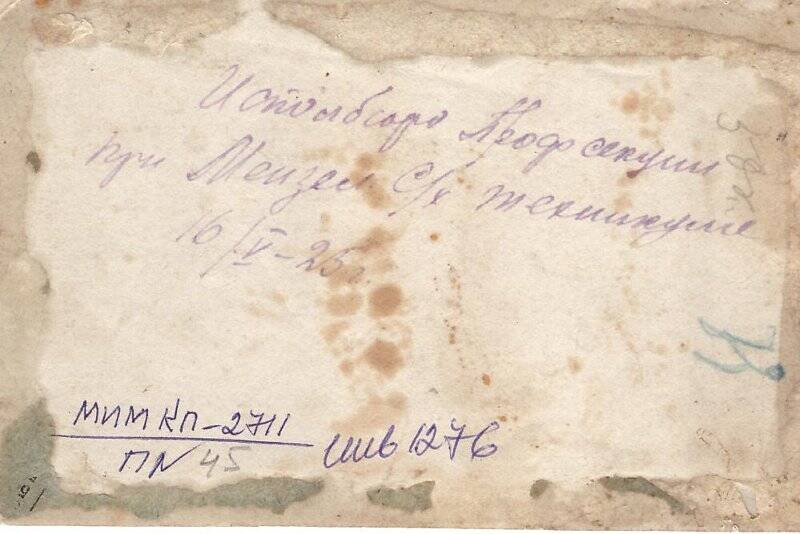 Исполбюро Профсекции
при Мензел с/х техникуме
16/V-25г.
МИМ КП-2711
ПN 45
инв 1276